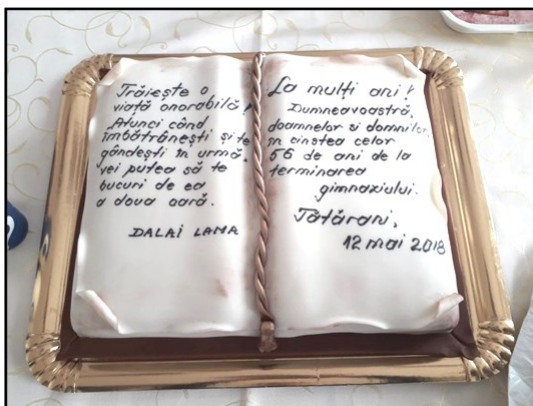 Trăiește o
viață onorabilă!
Atunci când
îmbătrânești și te
gândești în urmă,
vei putea să te
bucuri de ea
a doua oară.
DALAI LAMA
La mulți ani!
Dumneavoastră,
doamnelor și domnilor,
în cinstea celor
56 de ani de la
terminarea
gimnaziului.
Tătărani,
12 mai 2018